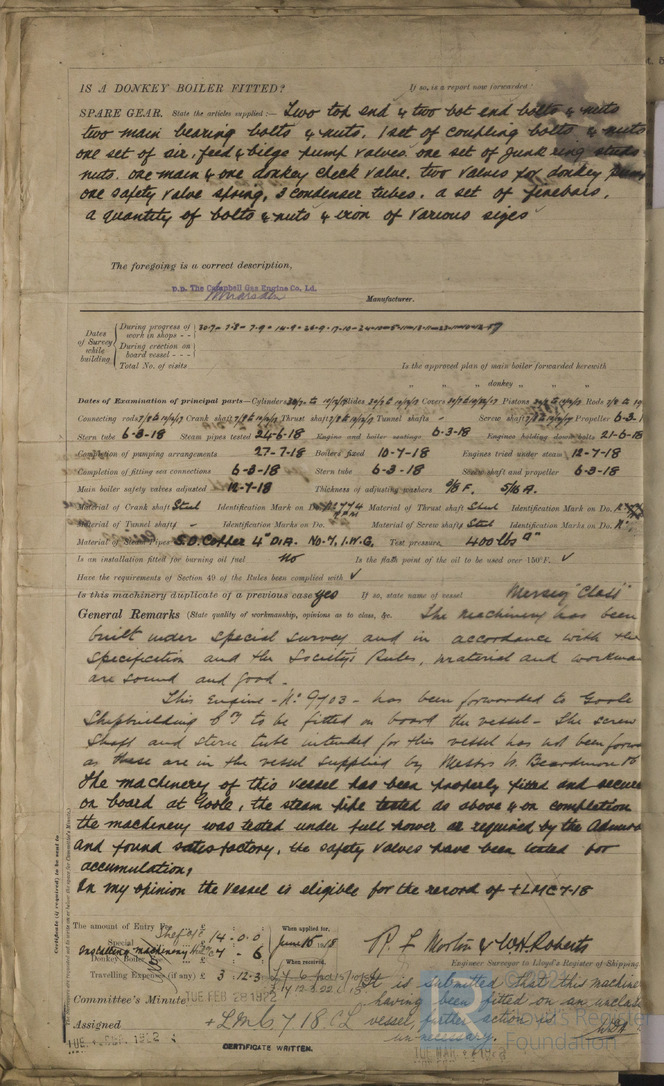 IS A DONKEY BOILER FITTED? If so, is a report now forwarded?
SPARE GEAR. State the articles supplied:— Two top end & two bot end bolts & nuts
two main bearing bolts & nuts, 1 set of coupling bolts & nuts
one set of air, feed & bilge pump valves. one set of junk ring studs
nuts. one main & one donkey check valve. two valves for donkey
one safety valve spring, 3 condenser tubes. a set of firebars,
a quantity of bolts & nuts & iron of various sizes
The foregoing is a correct description,
p.p. The Campbell Gas Engine Co. Ld.
Manufacturer.
Dates of Survey while building
During progress of work in shops - -
During erection on board vessel - - -
Total No. of visits
Is the approved plan of main boiler forwarded herewith
" " " donkey " " "
Dates of Examination of principal parts—Cylinders Slides Covers Pistons Rods
Connecting rods Crank shaft Thrust shaft Tunnel shafts - Screw shaft Propeller 6-3-1
Stern tube 6-3-18 Steam pipes tested 24-6-18 Engine and boiler seatings 6-3-18 Engines holding down bolts 21-6-18
Completion of pumping arrangements 27-7-18 Boilers fixed 10-7-18 Engines tried under steam 12-7-18
Completion of fitting sea connections 6-3-18 Stern tube 6-3-18 Screw shaft and propeller 6-3-18
Main boiler safety valves adjusted 12-7-18 Thickness of adjusting washers F. 5/16 A.
Material of Crank shaft Steel Identification Mark on Do. Material of Thrust shaft Steel Identification Mark on Do.
Material of Tunnel shafts - Identification Marks on Do. Material of Screw shafts Steel Identification Marks on Do.
Material of Steam Pipes S.D. Copper 4" DIA. No. 7. I.W.G. Test pressure 400 lbs □"
Is an installation fitted for burning oil fuel No Is the flash point of the oil to be used over 150°F. ✓
Have the requirements of Section 49 of the Rules been complied with ✓
Is this machinery duplicate of a previous case yes If so, state name of vessel "Mersey Class"
General Remarks (State quality of workmanship, opinions as to class, &c. The machinery has been
built under special survey and in accordance with the
specification and the Society's Rules, material and workman
are sound and good.
This Engine - No. 9703 - has been forwarded to Goole
Shipbuilding Co to be fitted on board the vessel - The screw
shaft and stern tube intended for this vessel has not been forw
as these are in the vessel supplied by Messrs W. Beardmore
The machinery of this vessel has been properly fitted and secure
on board at Goole, the steam pipe tested as above & on completion
the machinery was tested under full power as required by the Admir
and found satisfactory, the safety valves have been tested for
accumulation.
In my opinion the vessel is eligible for the record of +LMC 7-18
Certificate (if required) to be sent to
The amount of Entry Fee
Special 14 - 0 - 0
When applied for,
June 15 1918
Donkey Boiler Fee
When received,
Travelling Expenses (if any) £ 3 : 12 - 3
& W.H. Roberts
Engineer Surveyor to Lloyd's Register of Shipping.
It is submitted that this machine
having been fitted on an unclass
vessel, further action is
unnecessary.
Committee's Minute TUE FEB 28 1922
Assigned + LMC 7 18 CL
CERTIFICATE WRITTEN.
Lloyd's Register
Foundation